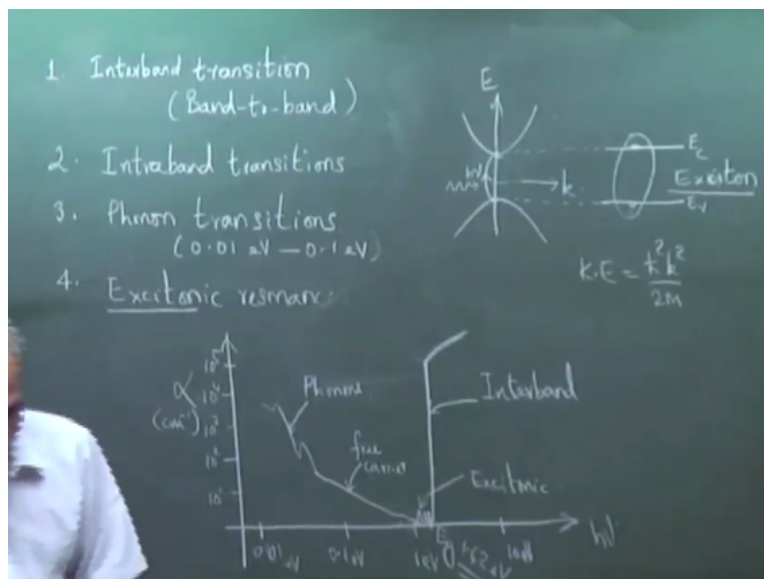 1. Interband transition
(Band-to-band)
2. Intraband transitions
3. Phonon transitions
(0.01 eV — 0.1 eV)
4. Excitonic resonance
E
hν
k
E_c
Exciton
E_v
K.E = ħ²k²
2m
α
(cm⁻¹)
10⁵
10⁴
10³
10²
10¹
Phonons
free
carrier
Interband
Excitonic
0.01 eV
0.1 eV
1 eV
hν